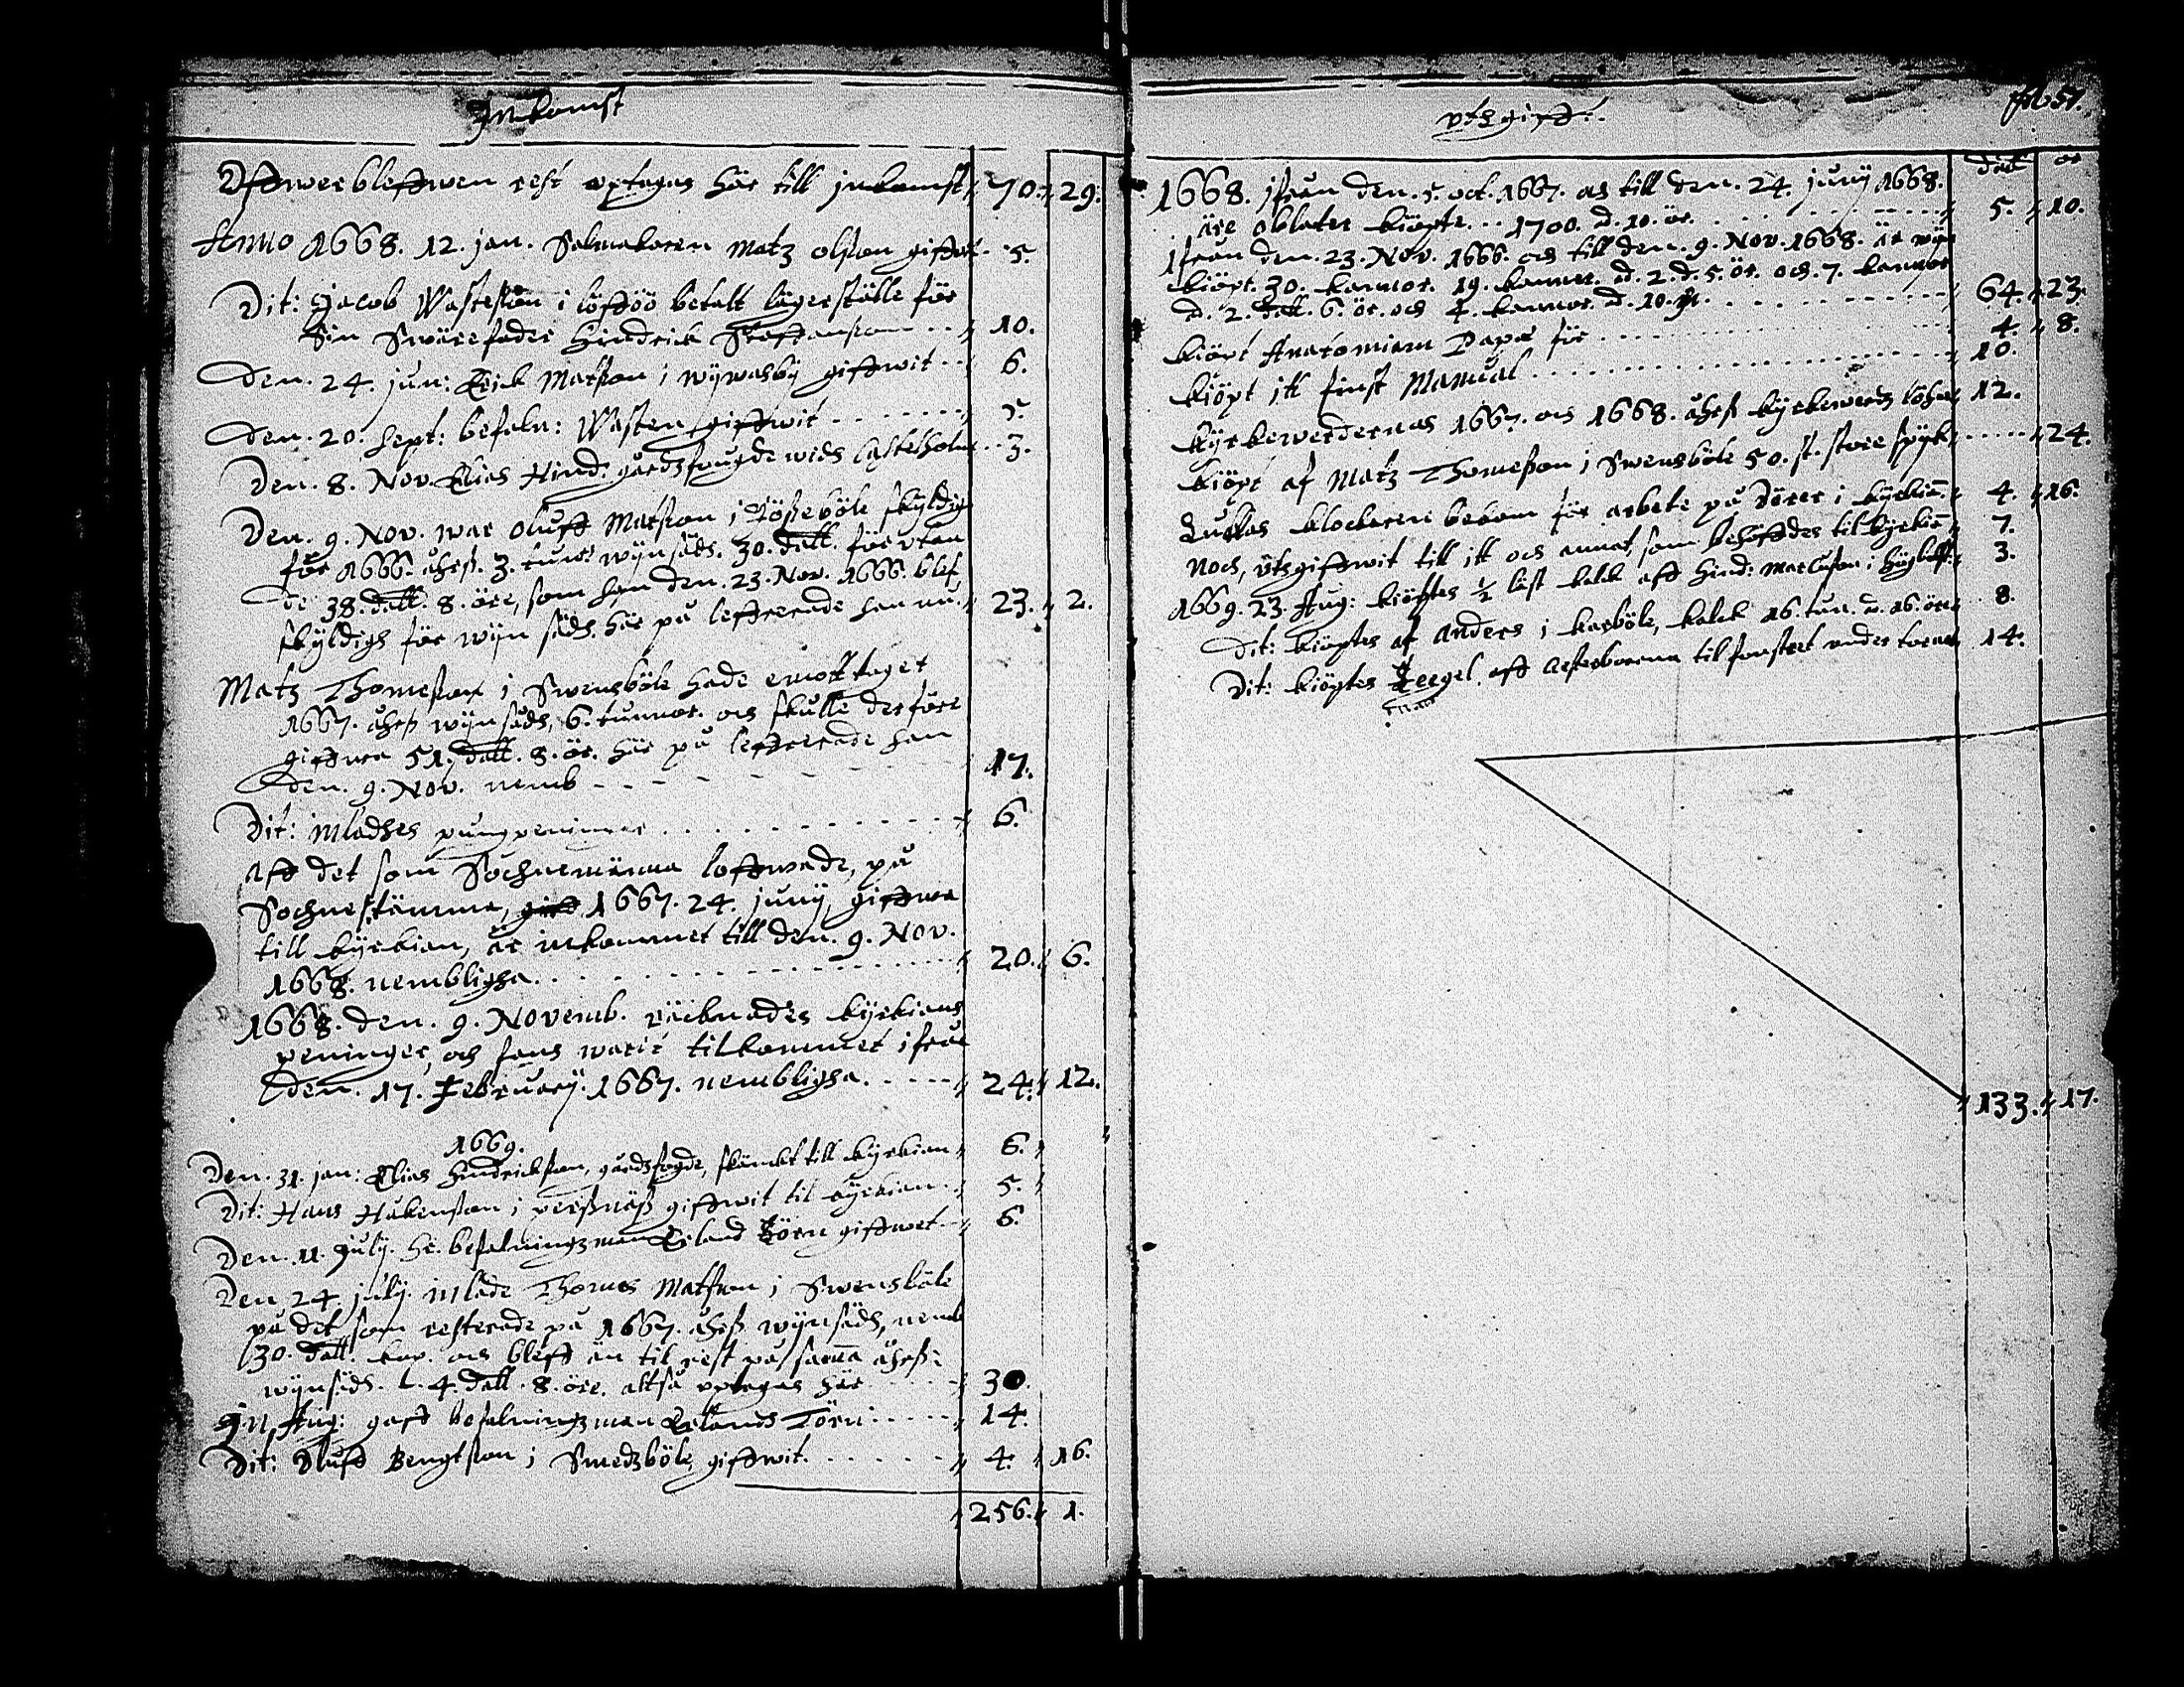 Inkomst
Offwerbleffwen rest optagas här till inkomst 70. 29.
Anno 1668. 12. jan. Salmakaren Matz olsson giffwit. 5.
Dit: Jacob Wastesson i löfföö betalt lägerställe för
Sin Swärefader Hindrick Staffansson 10.
Den. 24. jun: Erick Matsson i wywasby giffwit 6.
Den. 20. Sept: befaln: Wasten giffwit 5.
Den. 8. Nov. Elias Hind: gårdzfougde widh Castelholm 3.
Den. 9. Nov. war oluff Matsson i Tößeböle skyldig
för 1666. åhrß. 3. tunr wijnsädh. 30. dall. för utan
de 38. dall. 8. öre, som han den. 23. Nov. 1666. blef
skyldigh för wijn sädh. här på leffrerade han nu 23. 2.
Matz Thomesson i Swensböle hade emottaget
1667. åhrß wijnsädh, 6. tunnor. och skulle derföre
giffwa 51. dall. 8. ör. här på leffrerade han
den. 9. Nov. nemb 17.
Dit: inladhes pungpeningar 6.
Aff det som Sochnemänna loffwade, på
Sochnestämma, giff 1667. 24. junij, giffwa
till kyrkian, är inkommet till den. 9. Nov.
1668. nembligha. 20. 6.
1668. den. 9. Novemb. räcknades kyrkians
peninger, och fans warit tilkommet ifrån
den. 17. February. 1667. nembligha. 24. 12.
1669.
Den. 31. jan: Elias Hindrickson, gårdzfogde, skänkt till kyrkian 6.
Dit: Hans Håkensson i perßnäß giffwit til kyrkian. 5.
Den. 11. July. hr. befalningzman Erland Törn giffwet 6.
Den 24. july. inlade Thomes Matsson i Swensböle
på det som resterade på 1667. åhrß wijnsädh, nemb
30. dall. kop. och bleff än til rest på samma åhrß:
wijnsädh. 4. dall. 8. öre. altså optages här 30.
In Aug: gaff befalningzman Erlandh Törn: 14.
Dit: Oluff Bengtsson i Smedzböle giffwit. 4. 16.
256. 1.
vthgifft.
fol 51.
dall ör
1668. ifrån den. 5. oct. 1667. och till den. 24. junij 1668.
äre oblater kiöpte. 1700. d. 10. ör. 5. 10.
Ifrån den. 23. Nov. 1666. och till den. 9. Nov. 1668. är wijn
kiöpt. 30. kannor. 19. kannor. d. 2. d. 5. ör. och. 7. kannor
d. 2. dall. 6. ör. och 4. kannor. d. 10. 64. 23.
kiöpt Anatomiam Papæ för 4. 8.
kiöpt itt finst Manual 10.
Kyrkewerdernas 1667. och 1668. åhrß kyrkewerdz löhn 12.
kiöpt af Matz Thomeßon i Swensböle 50. st. store spijk 24.
Luckas klockaren bekom för arbete på dörer i kyrkian. 4. 16.
Noch, uthgiffwit till itt och annat, som behöffdes til kyrkian 7.
1669. 23. Aug: kiöptes ½ läst kalck aff Hind: Marcuson i 3.
Dit: kiöptes af Anders i karböle, kalck 16. tun. à. 16. öre 8.
Dit: kiöptes Teegel. aff til fonstret under tornet 14.
133. 17.